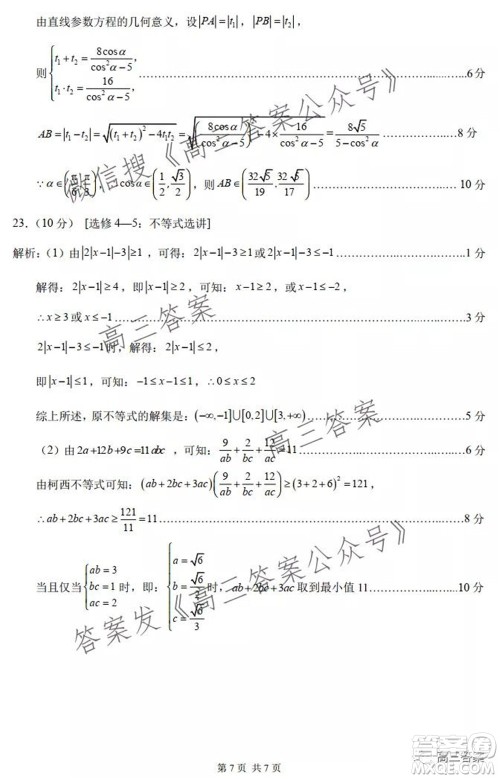 由直线参数方程的几何意义，设|PA|=|t₁|，|PB|=|t₂|，
则{t₁+t₂=8cosα/(cos²α−5)，
t₁·t₂=16/(cos²α−5) ……6 分
AB=|t₁−t₂|=√((t₁+t₂)²−4t₁t₂)=√((8cosα/(cos²α−5))²−4×16/(cos²α−5))=8√5/(5−cos²α) ……8 分
∵α∈(π/6,π/3)，cosα∈(1/2,√3/2)，则AB∈(32√5/19,32√5/17) ……10 分
23.（10 分） [选修 4—5：不等式选讲]
解析：（1）由|2|x−1|−3|≥1，可得：2|x−1|−3≥1或2|x−1|−3≤−1 ……1 分
解得：2|x−1|≥4，即|x−1|≥2，可知：x−1≥2，或x−1≤−2，
∴x≥3或x≤−1 ……3 分
2|x−1|−3≤−1时，解得：2|x−1|≤2，
即|x−1|≤1，可知：−1≤x−1≤1，∴0≤x≤2
综上所述，原不等式的解集是：(−∞,−1]∪[0,2]∪[3,+∞) ……5 分
（2）由2a+12b+9c=11abc，可知：9/ab+2/bc+12/ac=11 ……6 分
由柯西不等式可知：(ab+2bc+3ac)(9/ab+2/bc+12/ac)≥(3+2+6)²=121，
∴ab+2bc+3ac≥121/11=11 ……8 分
当且仅当{ab=3
bc=1
ac=2 时，即：{a=√6
c=√6/3 时，ab+2bc+3ac取到最小值 11 ……10 分
微信搜《高三答案公众号》
高三答案
高三答案
答案发《高三答案公众号》
第 7 页 共 7 页
高三答案